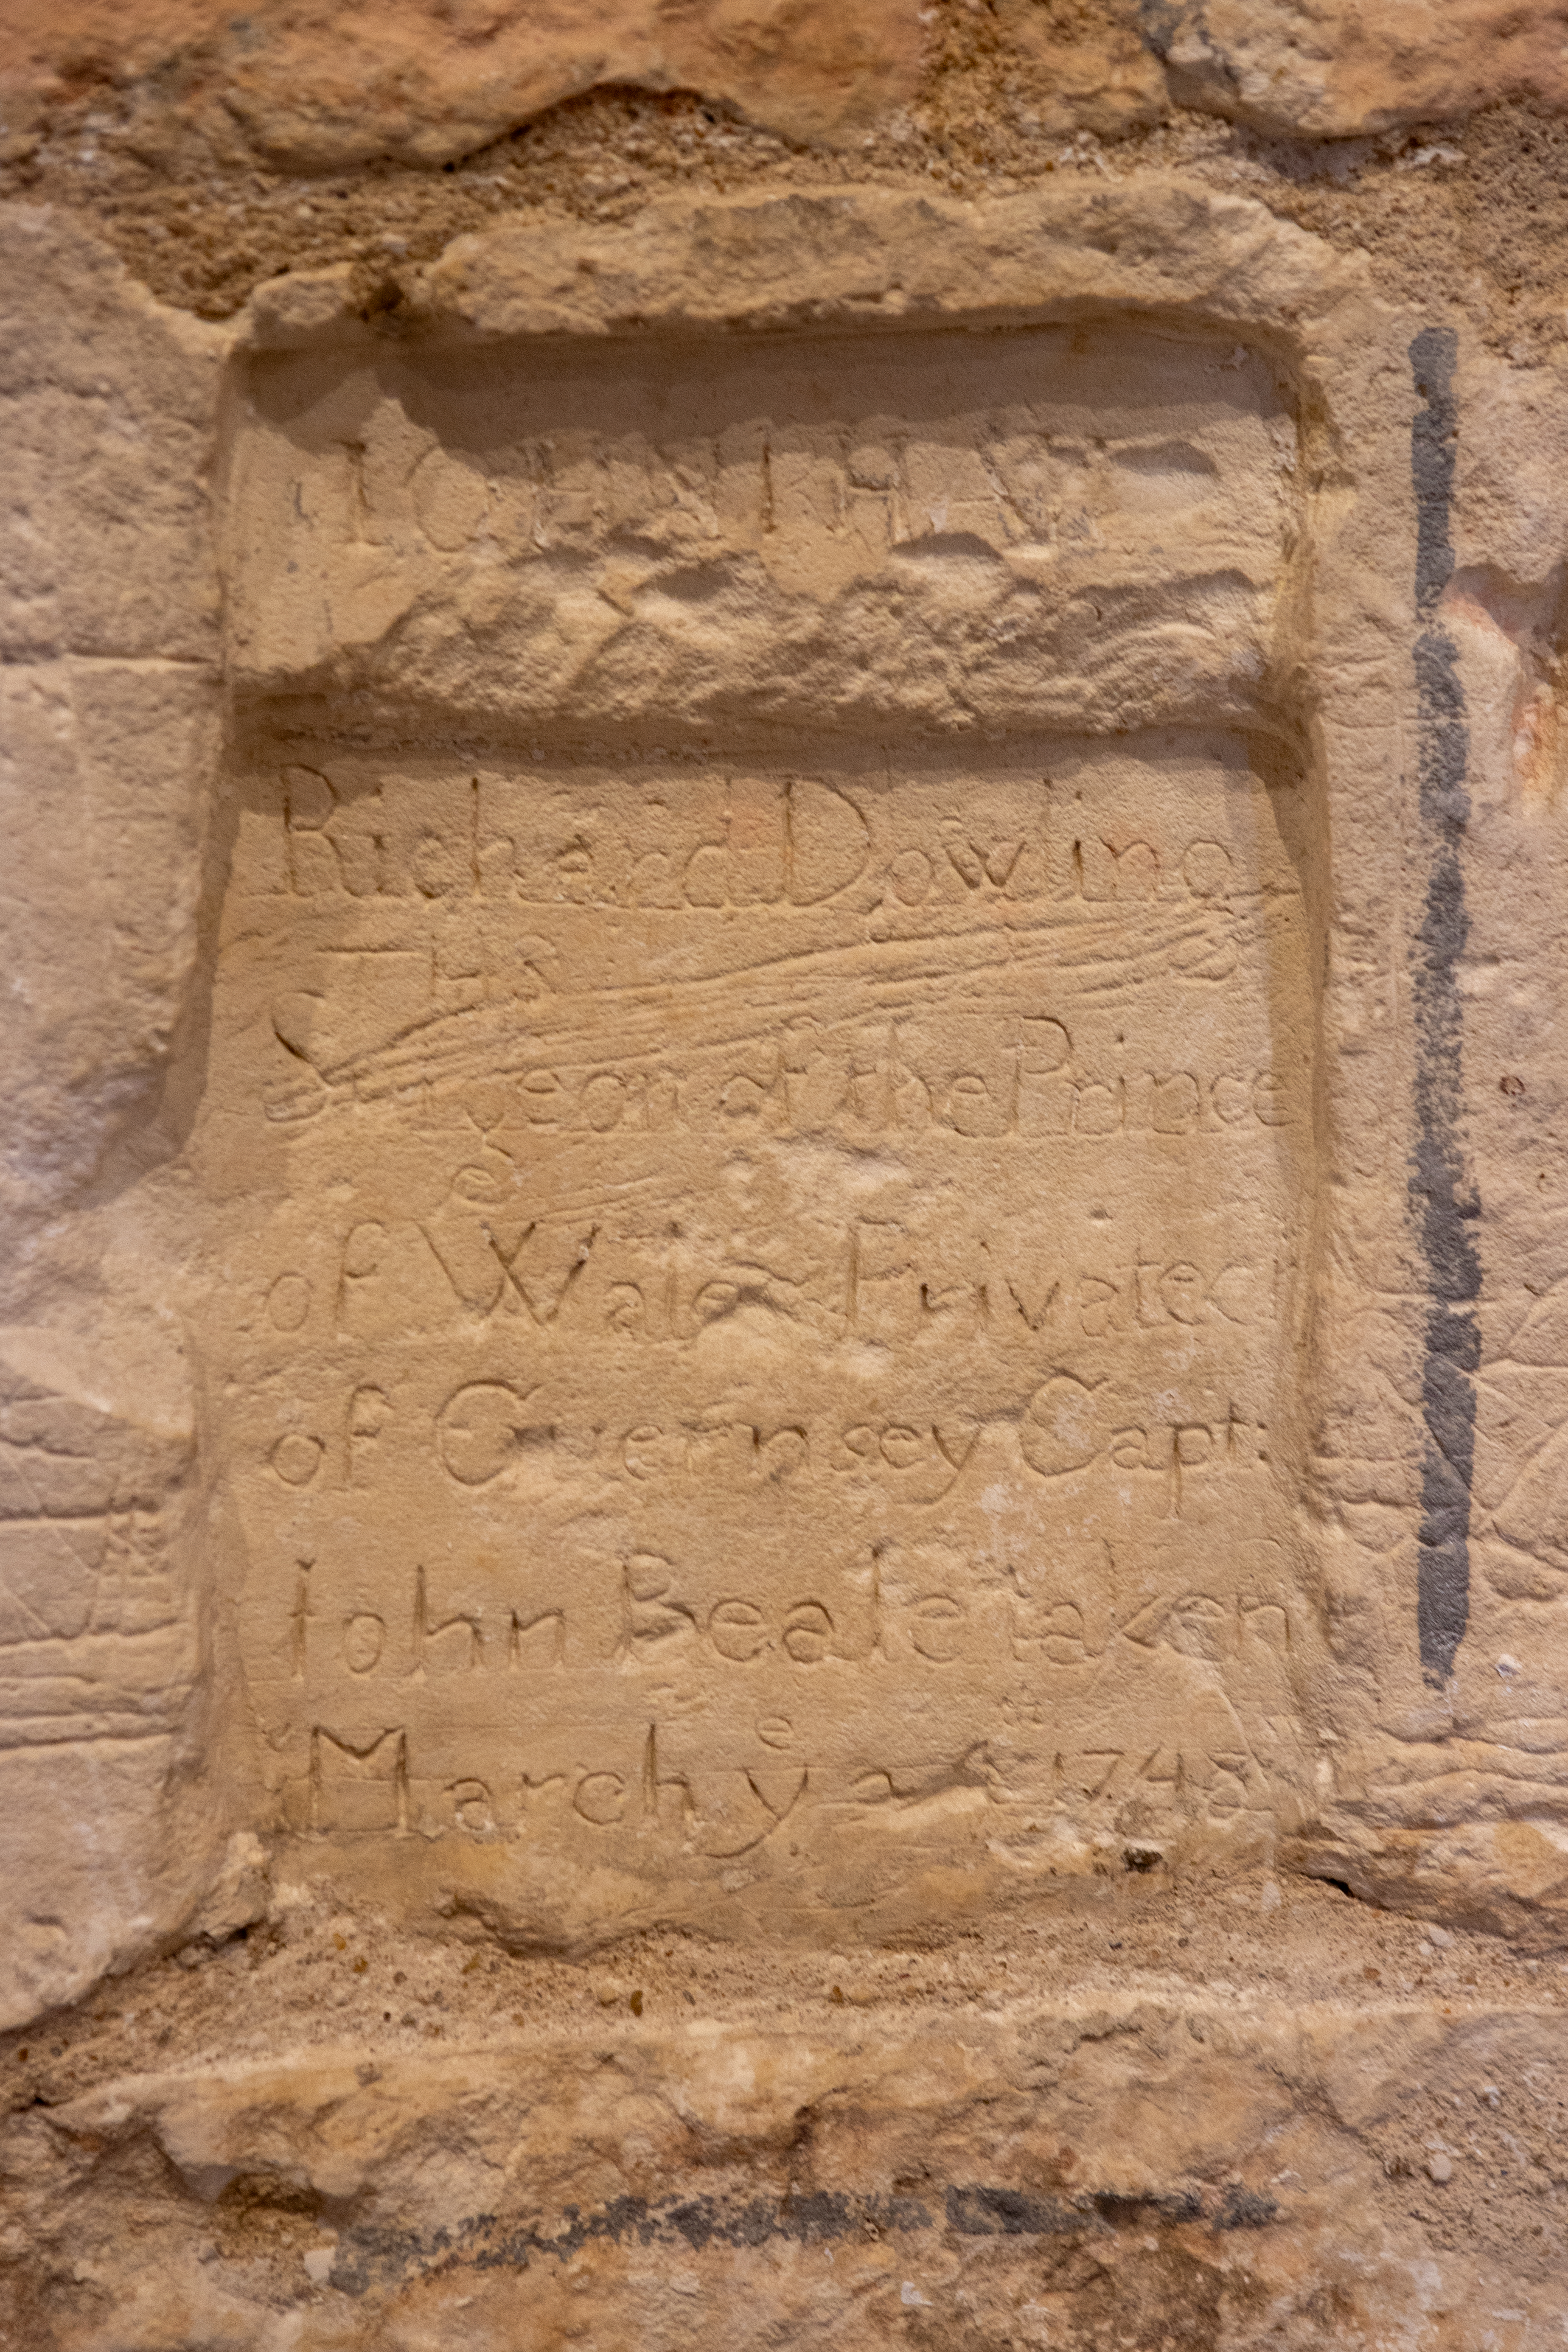 Richard Dowling
THS
Surgeon of the Prince
of Wales Privateer
of Guernsey Capt:
Iohn Beale taken
March yᵉ 1748